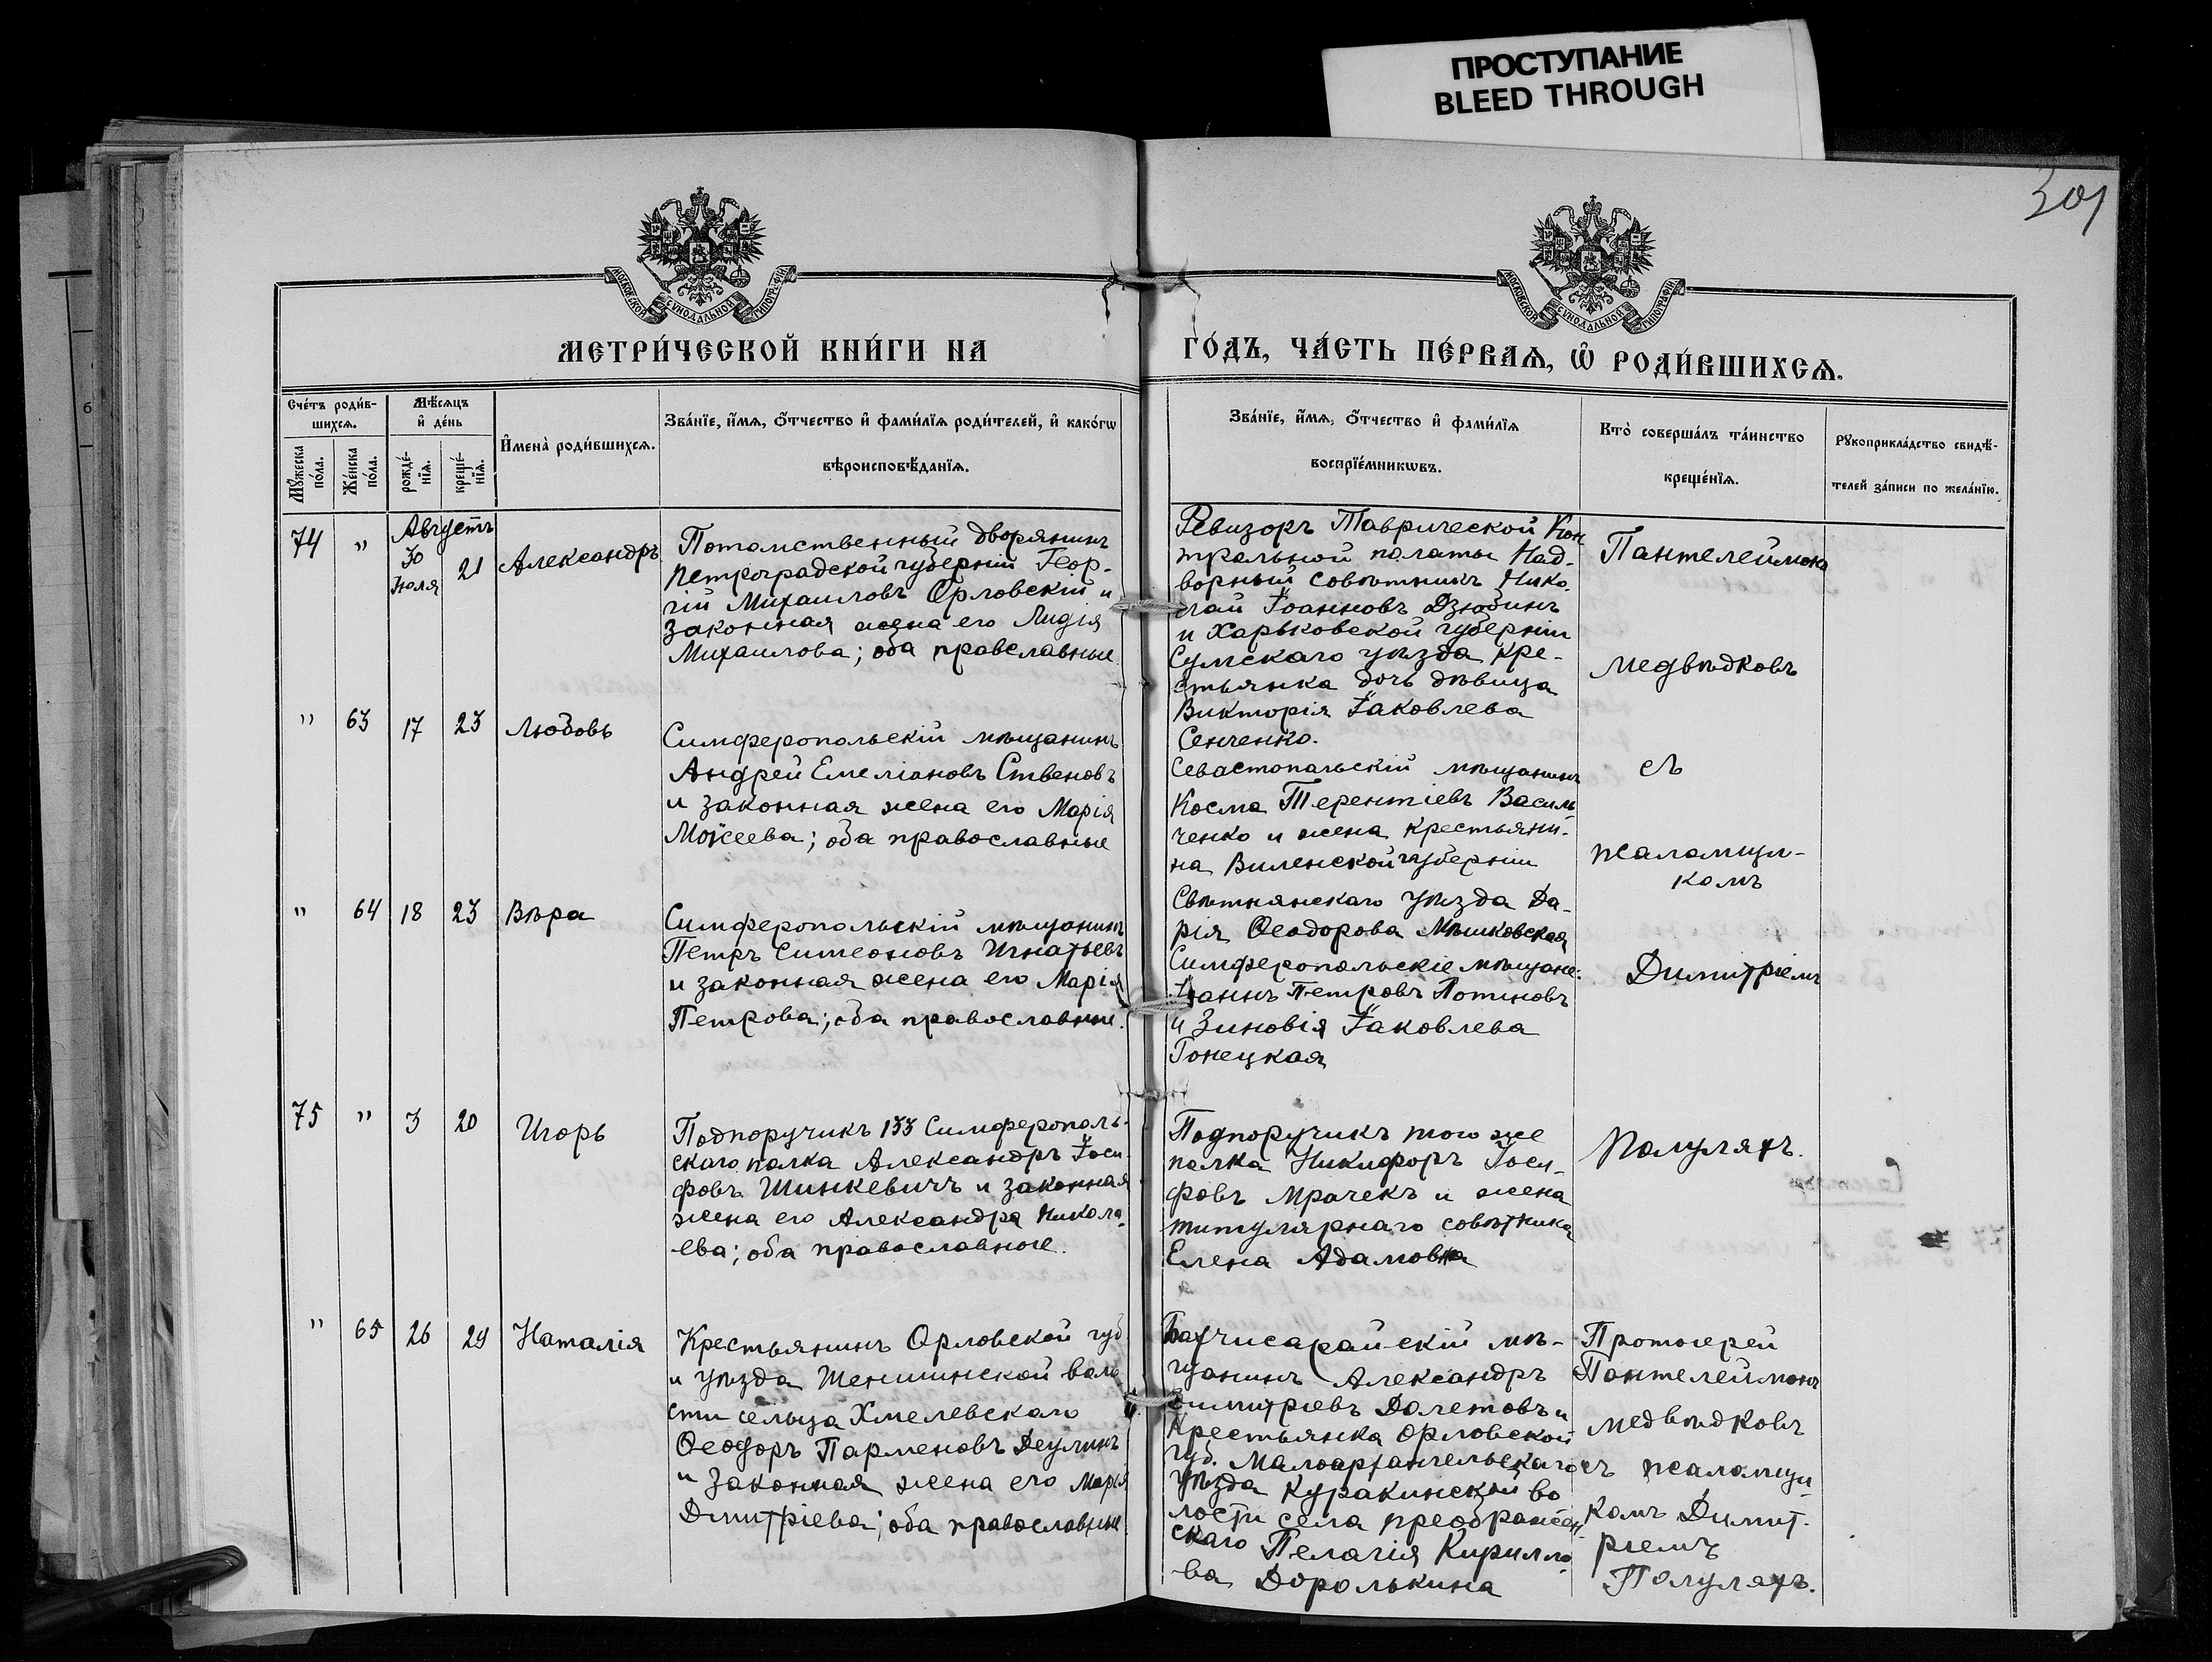 ПРОСТУПАНИЕ
BLEED THROUGH
301
МОСКОВСКОЙ СѴНОДАЛЬНОЙ ТИПОГРАФІИ
МОСКОВСКОЙ СѴНОДАЛЬНОЙ ТИПОГРАФІИ
МЕТРИ́ЧЕСКОЙ КНИ́ГИ НА
ГО́ДЪ, ЧА́СТЬ ПЕ́РВАѦ, Ѡ҆ РОДИ́ВШИХСѦ.
Сче́тъ роди́в-
шихсѧ.
Мꙋ́жеска
по́ла.
Же́нска
по́ла.
Мѣ́сѧцъ
и҆ де́нь
рожде́-
нїѧ.
креще́-
нїѧ.
И҆мена̀ роди́вшихсѧ.
Зва́нїе, и҆́мѧ, ѻ҆́тчество и҆ фами́лїѧ роди́телей, и҆ како́гѡ
вѣроисповѣ́данїѧ.
Зва́нїе, и҆́мѧ, ѻ҆́тчество и҆ фами́лїѧ
воспрїе́мникѡвъ.
Кто̀ соверша́лъ та́инство
креще́нїѧ.
Рꙋкоприкла́дство свидѣ́-
телей за́писи по жела́нїю.
74 " Августъ
30
Июля
21 Александръ
Потомственный дворянинъ
Петроградской губерніи Геор-
гій Михаиловъ Орловскій и
законная жена его Лидія
Михаилова; оба православные
Ревизоръ Таврической Кон
трольной палаты Над-
ворный совѣтникъ Нико-
лай Іоанновъ Дзюбинъ
и Харьковской губерніи
Сумскаго уѣзда кре-
стьянка дочь дѣвица
Викторія Іаковлева
Сенченко.
Пантелеймонъ
Медвѣдковъ
съ
псаломщи-
комъ
Димитріемъ
Полуляхъ.
" 63 17 23 Любовь
Симферопольскій мѣщанинъ
Андрей Емеліановъ Ственовъ
и законная жена его Марія
Моисеева; оба православные
Севастопольскій мѣщанинъ
Косма Терентіевъ Василь
ченко и жена крестьяни-
на Виленской губерніи
Свѣтнянскаго уѣзда Да-
рія Ѳеодорова Мѣшковская
" 64 18 23 Вѣра
Симферопольскій мѣщанинъ
Петръ Симеоновъ Игнатьевъ
и законная жена его Марія
Петрова; оба православные.
Симферопольскіе мѣщане:
Іоаннъ Петровъ Потиновъ
и Зиновія Іаковлева
Гонецкая
75 " 3 20 Игорь
Подпоручикъ 133 Симферополь-
скаго полка Александръ Іоси-
фовъ Шинкевичъ и законная
жена его Александра Никола-
ева; оба православные.
Подпоручикъ того же
полка Никифоръ Іоси-
фовъ Мрачекъ и жена
титулярнаго совѣтника
Елена Адамовна
" 65 26 29 Наталія
Крестьянинъ Орловской губ
и уѣзда Шеншинской воло
сти сельца Хмелевскаго
Ѳеодоръ Парменовъ Деулинъ
и законная жена его Марія
Дмитріева; оба православные
Бахчисарайскій мѣ-
щанинъ Александръ
Димитріевъ Долетовъ и
крестьянка Орловской
губ. Малоархангельскаго
уѣзда Куракинской во
лости села Преображен
скаго Пелагія Кирилло-
ва Доролькина
Протоіерей
Пантелеймонъ
Медвѣдковъ
съ псаломщи-
комъ Димит-
ріемъ
Полуляхъ.